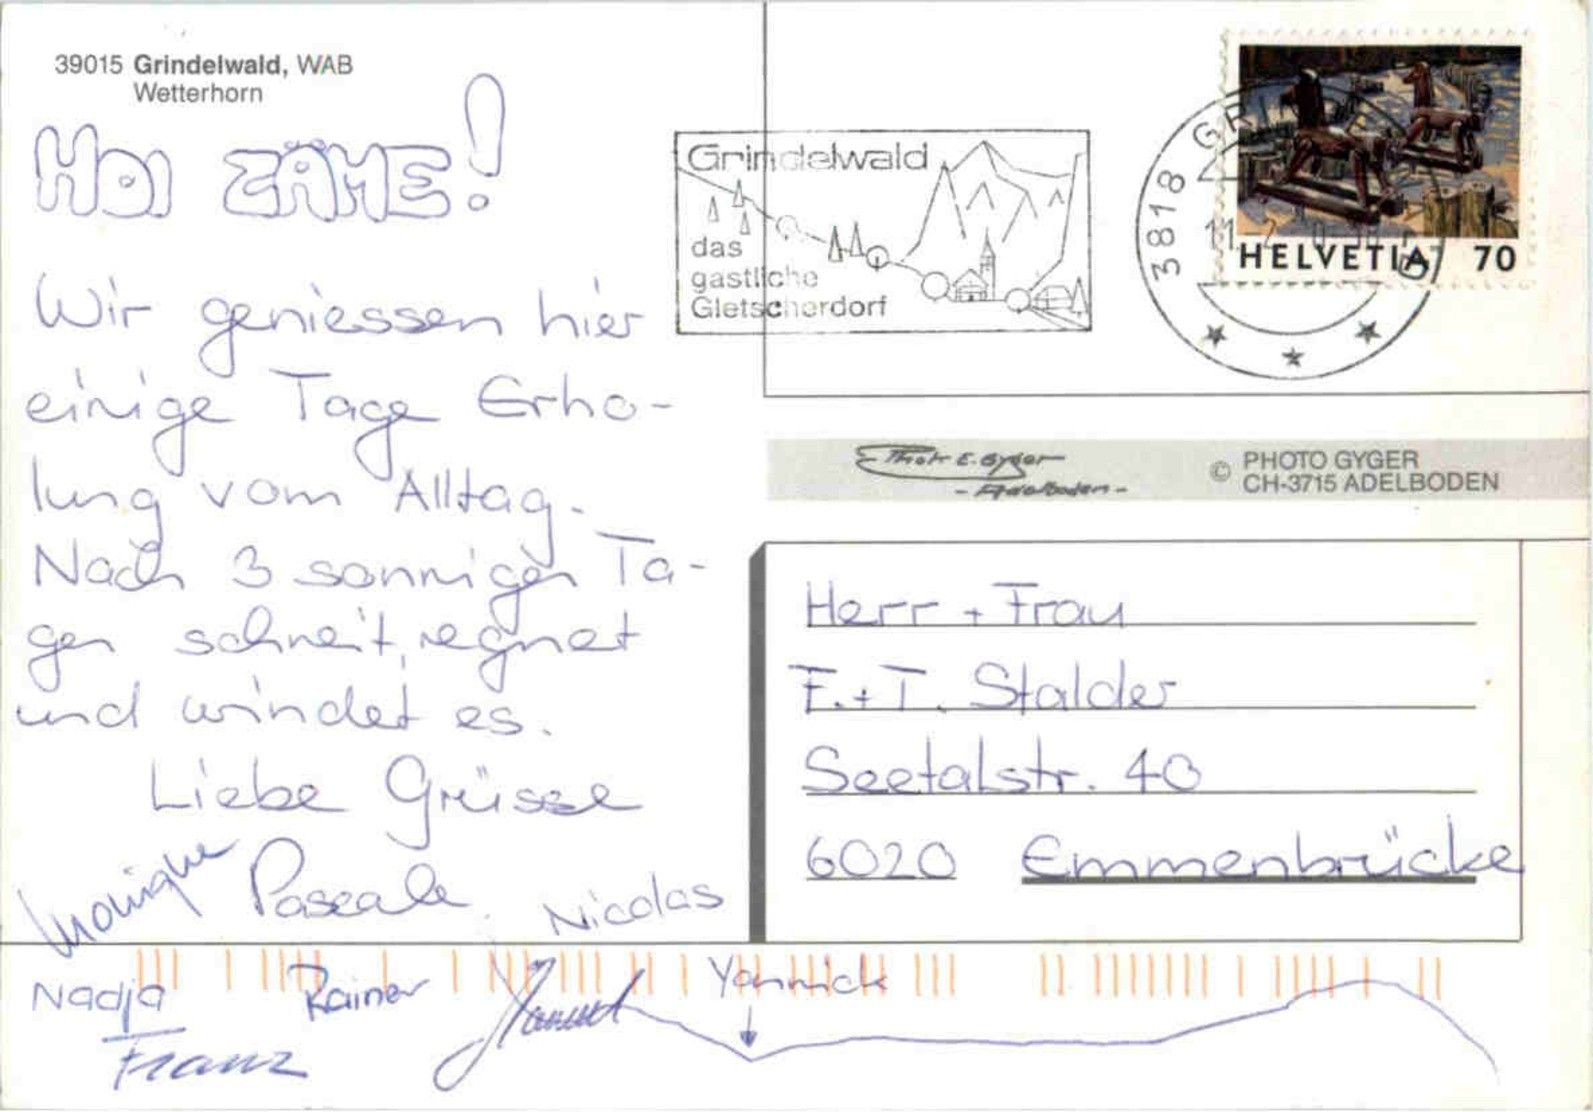 39015 Grindelwald, WAB
Wetterhorn
HOI ZÄME!
Wir geniessen hier
einige Tage Erho-
lung vom Alltag.
Nach 3 sonnigen Ta-
gen schneit, regnet
und windet es.
Liebe Grüsse
Monique Pascale Nicolas
Nadja Rainer Yannick
Franz
Grindelwald
das
gastliche
Gletscherdorf
3818
HELVETIA 70
Photo E. Gyger
- Adelboden -
© PHOTO GYGER
CH-3715 ADELBODEN
Herr + Frau
F. + T. Stalder
Seetalstr. 40
6020 Emmenbrücke